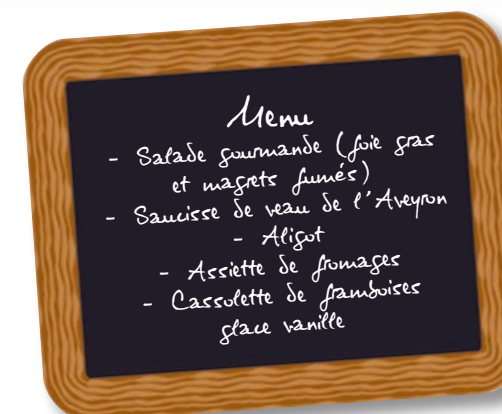 Menu
- Salade gourmande (foie gras
et magrets fumés)
- Saucisse de veau de l'Aveyron
- Aligot
- Assiette de fromages
- Cassolette de framboises
glace vanille